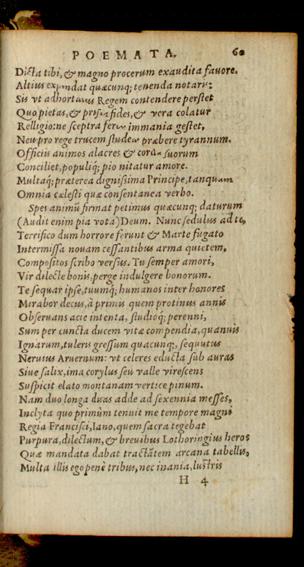 POEMATA. 60
Dicta tibi, & magno procerum exaudita fauore.
Altius expandat quæcunq; tenenda notaris:
Sis vt adhortans Regem contendere perstet
Quo pietas, & prisca fides, & vera colatur
Relligio: ne sceptra feros immania gestet,
Neu pro rege trucem studeat præbere tyrannum.
Officiis animos alacres & corda suorum
Conciliet, populiq; pio nitatur amore.
Multaq; præterea dignissima Principe, tanquam
Omnia cælesti quæ consentanea verbo.
Spes animũ firmat petimus quæcunq; daturum
(Audit enim pia vota) Deum. Nunc sedulus ad te,
Terrifico dum horrore ferunt & Marte fugato
Intermissa nouam cessantibus arma quietem,
Compositos scribo versus. Tu semper amori,
Vir dilecte bonis, perge indulgere bonorum.
Te sequar ipse, tuumq; humanos inter honores
Mirabor decus, à primis quem protinus annis
Obseruans acie intenta, studioq; perenni,
Sum per cuncta ducem vitæ compendia, quamuis
Ignarum, tuleris gressum quacunq;, sequutus
Neruius Aruernum: vt celeres educta sub auras
Siue salix, ima corylus seu valle virescens
Suspicit elato montanam vertice pinum.
Nam duo longa duas adde ad sexennia messes,
Inclyta quo primùm tenuit me tempore magni
Regia Francisci, Iano, quem sacra tegebat
Purpura, dilectum, & breuibus Lothoringius heros
Quæ mandata dabat tractãtem arcana tabellis,
Multa illis ego penè tribus, nec inania, lustris
H 4